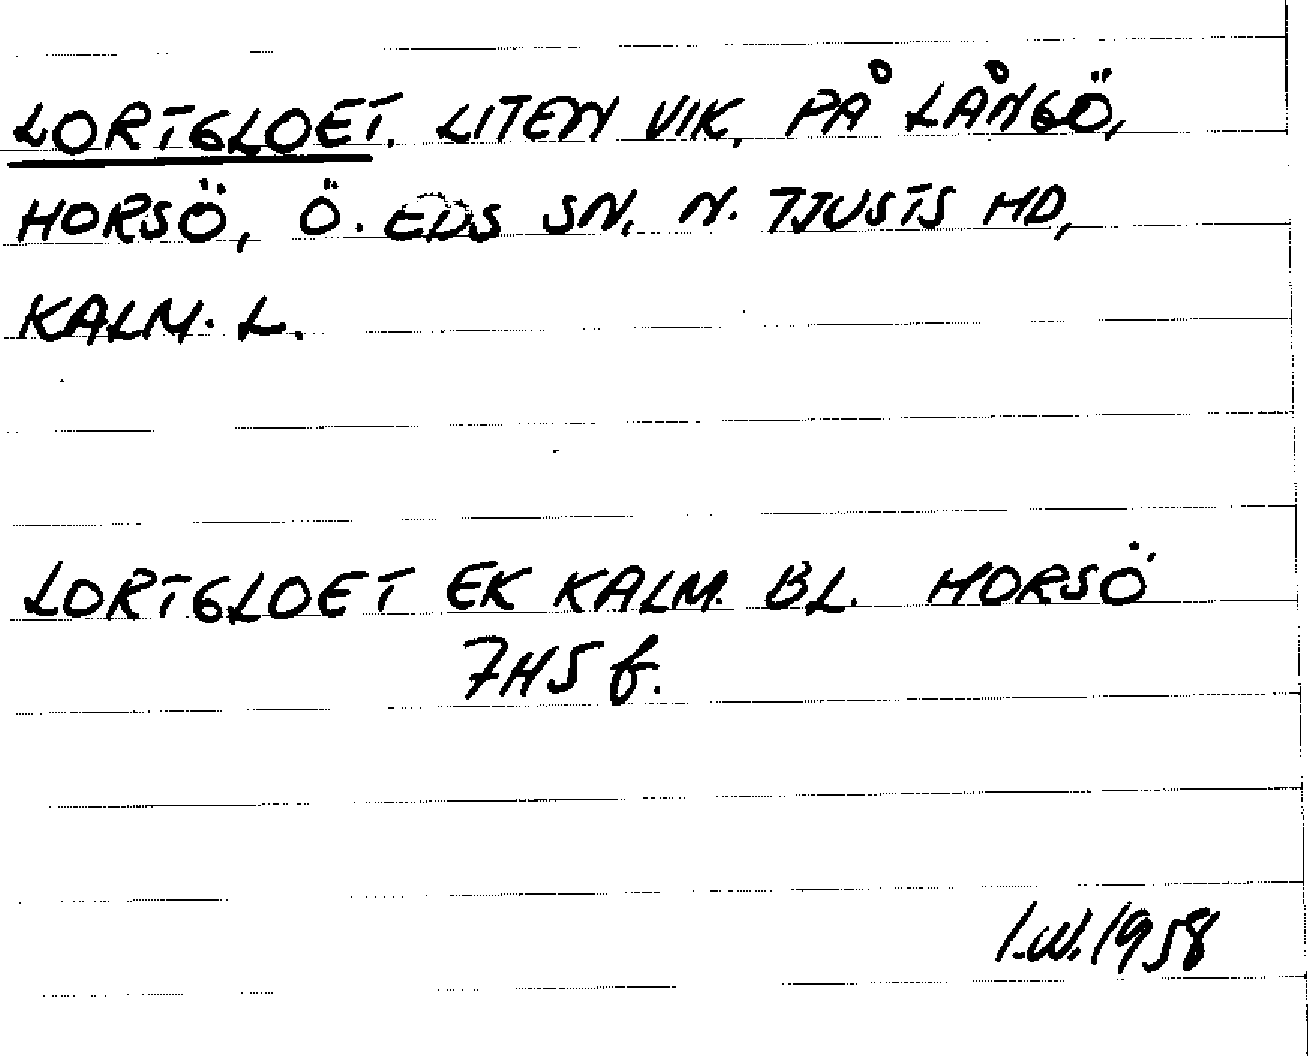 LORTGLOET. LITEN VIK, PÅ LÅNGÖ,
HORSÖ, Ö. EDS SN, N. TJUSTS HD,
KALM. L.
LORTGLOET EK KALM. BL. HORSÖ
7H5f.
I.W.1958